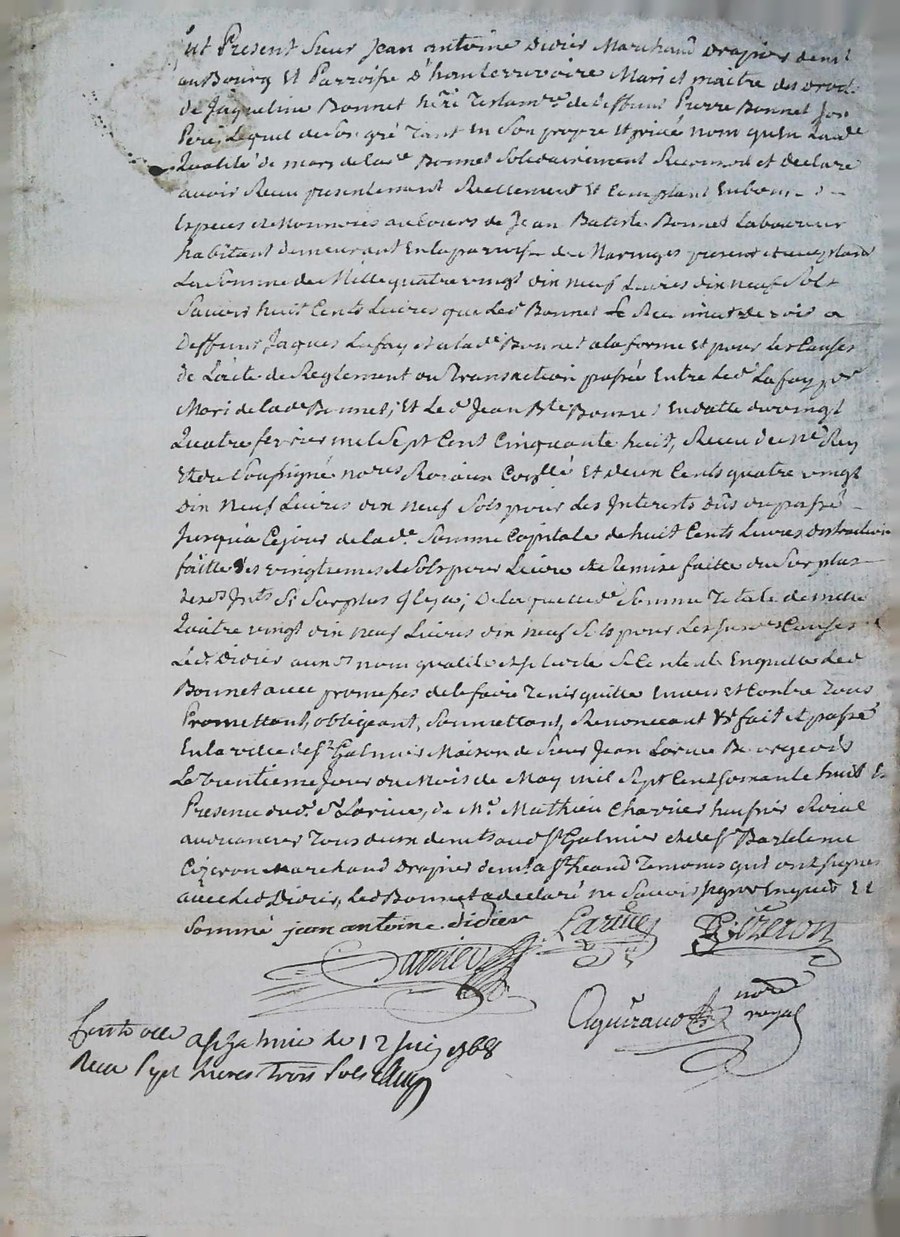 fut Present Sieur Jean antoine Didier Marchand Drapier demt
au Bourg Et Parroisse D'hauterrivoire Mari et maitre des droits
de Jaqueline Bonnet heri Testamre de deffunt Pierre Bonnet son
Pere, Lequel de son gré Tant En Son propre Et privé nom qu'en Ladte
Qualité de mary de lade Bonnet Solidairement Reconnoit et declare
avoir Receu presentement Reellement Et Comptant En bonnes
Especes et Monnoies au Cours de Jean Batiste Bonnet Laboureur
habitant demeurant En la parroisse de Maringes present et acceptant
La Somme de Mille quatre vingt dix neuf Livres dix neuf Sols
Savoir huit Cents Livres que Led Bonnet
Deffunt Jaques Lafay et a lade Bonnet a la forme et pour les Causes
de L'acte de Reglement ou Transaction passée Entre Led Lafay
Mari de lade Bonnet, Et Led Jean Bte Bonnet En datte du vingt
Quatre fevrier mil Sept Cent Cinquante huit, Receu de Me Rey
Et du Soussigné nores Roiaux Et deux Cents quatre vingt
dix neuf Livres dix neuf Sols pour Les Interets dûs du passé
Jusqu'a Ce jour de lade Somme Capitale de huit Cents Livres distraction
faitte des vingtiemes de Sols pour Livre et Remise faitte du Surplus
desds Ints Si Surplus il y a; De laquelle de Somme Totale de mille
Quatre vingt dix neuf Livres dix neuf Sols pour Les Causes
Led Didier aux ds nom qualité Se Contente Enquitte Led
Bonnet avec promesses de le faire Tenir quitte Envers et Contre Tous
Promettant, obligeant, Soumettant, Renonceant &c fait et passé
En la ville de St Galmier Maison de Sieur Jean Larive Bourgeois
Le trentieme Jour du Mois de May mil Sept Cent Soixante huit En
Presence dud Sr Larive, de Me Mathieu Charier huissier Roial
Tous deux demts aud St Galmier et de Sr Bartelemi
Cizeron Marchand Drapier demt a St heand Temoins qui ont signes
avec Led Didier, Led Bonnet a declaré ne Savoir signer Enquis Et
Sommé jean antoine didier
Larive Cizeron
Aguiraud nore
royal
Controllé a St Galmier le 12 juin 1768
Receu Sept livres trois Sols